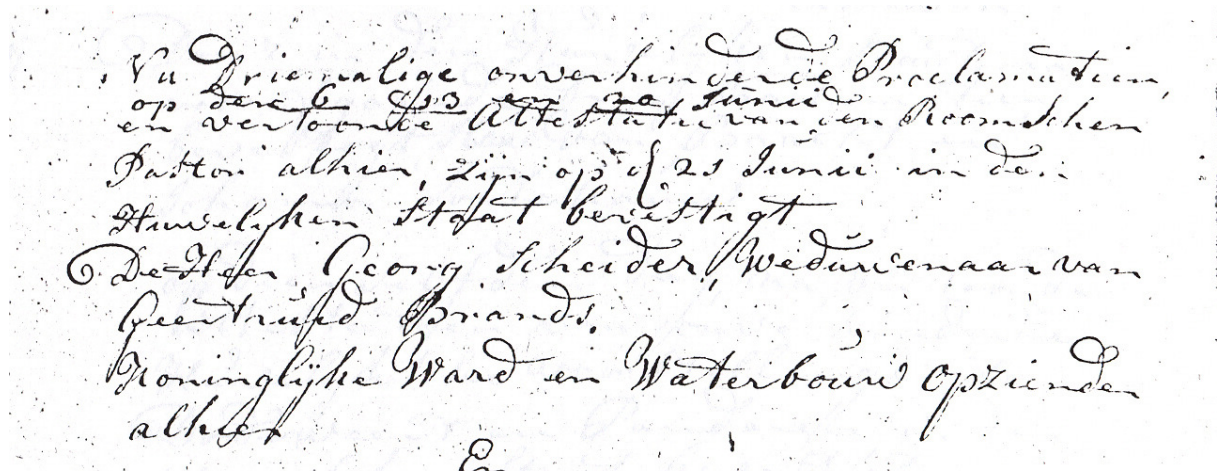 Na Driemalige onverhinderde Proclamatien,
op den 6 13 en 20 Junii
en vertoonde Attestatie van den Roomschen
Pastor alhier, zijn op d 21 Junii in den
Huwelijken Staat bevestigt
6. De Heer Georg Scheider, Weduwenaar van
Geertruid Brands.
Koninglijke Ward en Waterbouw Opziender
alhier
En